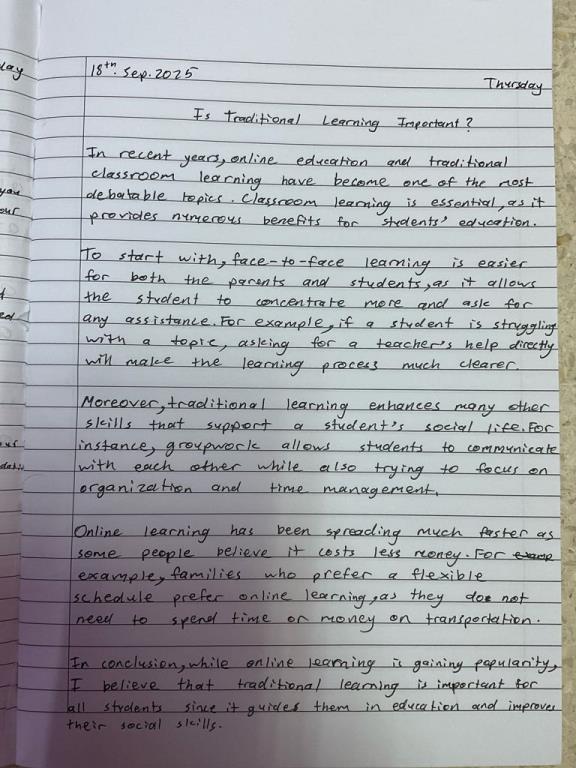 18th. Sep. 2025
Thursday
Is Traditional Learning Important?
In recent years, online education and traditional
classroom learning have become one of the most
debatable topics. Classroom learning is essential, as it
provides numerous benefits for students' education.
To start with, face-to-face learning is easier
for both the parents and students, as it allows
the student to concentrate more and ask for
any assistance. For example, if a student is struggling
with a topic, asking for a teacher's help directly
will make the learning process much clearer.
Moreover, traditional learning enhances many other
skills that support a student's social life. For
instance, groupwork allows students to communicate
with each other while also trying to focus on
organization and time management.
Online learning has been spreading much faster as
some people believe it costs less money. For examp
example, families who prefer a flexible
schedule prefer online learning, as they do not
need to spend time or money on transportation.
In conclusion, while online learning is gaining popularity,
I believe that traditional learning is important for
all students since it guides them in education and improves
their social skills.